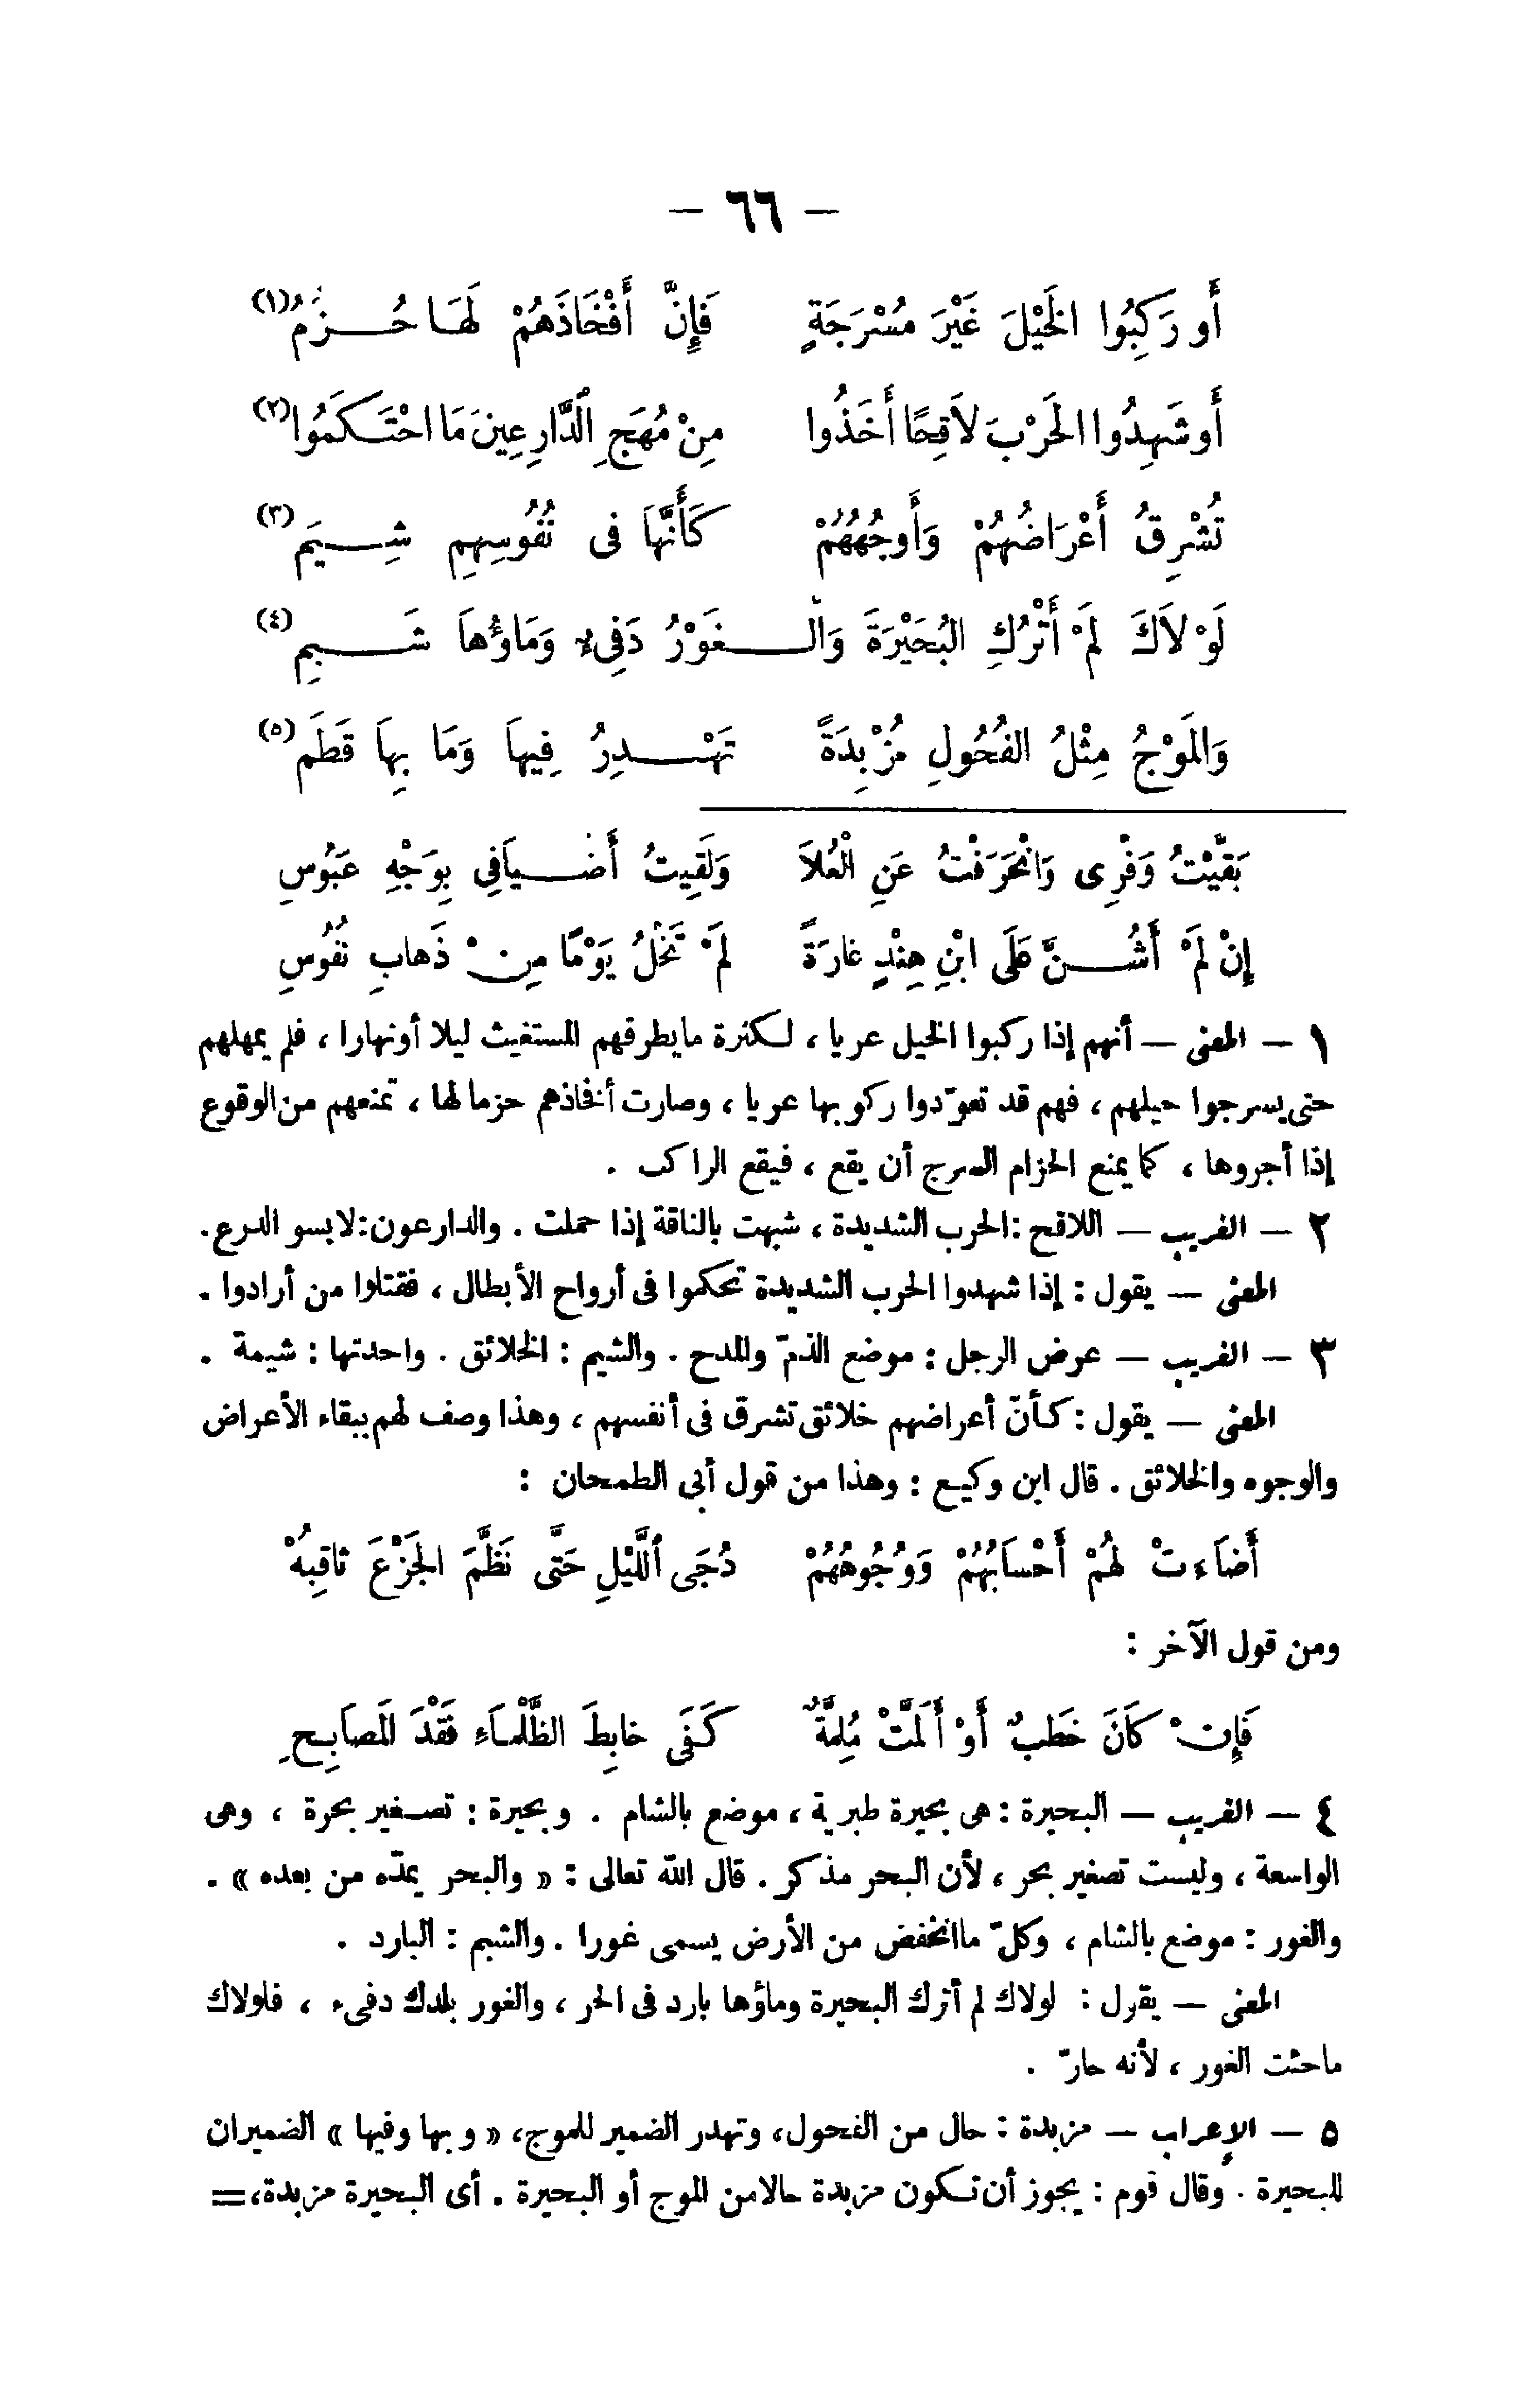 — ٦٦ —
أَو رَكِبُوا الخَيْلَ غَيْرَ مُسْرَجَةٍ فَإِنَّ أَفْخَاذَهُمْ لَهَا حُزُمُ (١)
أَو شَهِدُوا الحَرْبَ لاَقِحًا أَخَذُوا مِنْ مُهَجِ ٱلدَّارِعِينَ مَا احْتَكَمُوا (٢)
تُشْرِقُ أَعْرَاضُهُمْ وَأَوجُهُهُمْ كَأَنَّهَا فى نُفُوسِهِمِ شِيَم (٣)
لَوْلاَكَ لَمْ أَتْرُكِ البُحَيْرَةَ وَالْغَوْرُ دَفِىءٌ وَمَاؤُهاَ شَبِم (٤)
وَالمَوْجُ مِثْلُ الفُحُولِ مُزْبِدَةً تَهْدِرُ فِيهاَ وَمَا بِهاَ قَطَم (٥)
بَقَّيْتُ وَفْرِى وَانْحَرَفْتُ عَنِ الْعُلاَ وَلَقِيتُ أَضْيَافِى بِوَجْهِ عَبُوسِ
إِنْ لَمْ أَشُنَّ عَلَى ابْنِ هِنْدٍ غارَةً لَمْ تَخْلُ يَوْمًا مِنْ ذَهابِ نُفُوسِ
١ — المعنى — أنهم إذا ركبوا الخيل عريا ، لكثرة مايطرقهم المستغيث ليلا أونهارا ، فلم يمهلهم
حتى يسرجوا خيلهم ، فهم قد تعوّدوا ركوبها عريا ، وصارت أفخاذهم حزما لها ، تمنعهم من الوقوع
إذا أجروها ، كما يمنع الحزام السرج أن يقع ، فيقع الراكب .
٢ — الغريب — اللاقح : الحرب الشديدة ، شبهت بالناقة إذا حملت . والدارعون : لابسو الدرع .
المعنى — يقول : إذا شهدوا الحرب الشديدة تحكموا فى أرواح الأبطال ، فقتلوا من أرادوا .
٣ — الغريب — عرض الرجل : موضع الذمّ والمدح . والشيم : الخلائق . واحدتها : شيمة .
المعنى — يقول : كأنّ أعراضهم خلائق تشرق فى أنفسهم ، وهذا وصف لهم ببقاء الأعراض
والوجوه والخلائق . قال ابن وكيع : وهذا من قول أبى الطمحان :
أَضاَءتْ لهُمْ أَحْساَبُهُمْ وَوُجُوهُهُمْ دُجَى ٱللَّيْلِ حَتَّى نَظَّمَ الجَزْعَ ثاقِبُهْ
ومن قول الآخر :
فَإِنْ كَانَ خَطبٌ أَوْ أَلَمَّتْ مُلِمَّةٌ كَفَى خابِطَ الظَّلْماَءِ فَقْدَ المَصاَبِحِ
٤ — الغريب — البحيرة : هى بحيرة طبرية ، موضع بالشام . وبحيرة : تصغير بحرة ، وهى
الواسعة ، وليست تصغير بحر ، لأن البحر مذكر . قال الله تعالى : « والبحر يمدّه من بعده » .
والغور : موضع بالشام ، وكلّ ماانخفض من الأرض يسمى غورا . والشبم : البارد .
المعنى — يقول : لولاك لم أترك البحيرة وماؤها بارد فى الحر ، والغور بلدك دفىء ، فلولاك
ماجئت الغور ، لأنه حارّ .
٥ — الإعراب — مزبدة : حال من الفحول ، وتهدر الضمير للموج ، « وبها وفيها » الضميران
للبحيرة . وقال قوم : يجوز أن تكون مزبدة حالا من الموج أو البحيرة . أى البحيرة مزبدة ، =